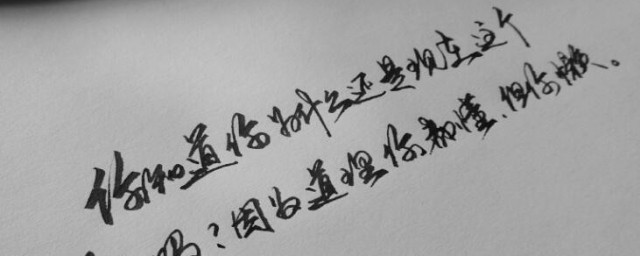 你知道你为什么还是现在这个
吗？因为道理你都懂，但你懒。